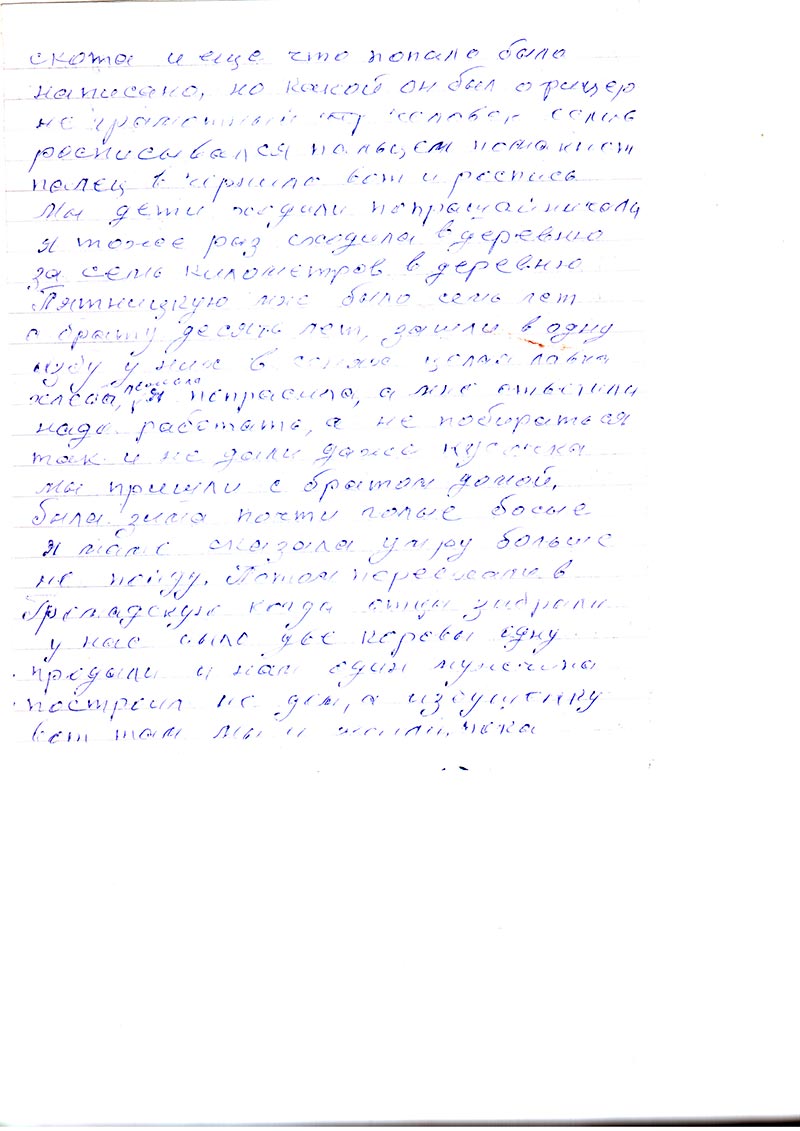 скота и еще что попало было
написано, но какой он был офицер
не грамотный человек
росписывался пальцем помакнет
палец в чернила вот и роспись
Мы дети ходили попрашайничали
я тоже раз сходила в деревню
за семь километров в деревню
Пятницкую мне было семь лет
а брату десять лет, зашли в одну
избу у них в сенях целая лавка
хлеба, лежала я попрасила, а мне ответили
надо работать, а не побираться
так и не дали даже кусочка
мы пришли с братом домой,
была зима почти голые босые
я маме сказала умру больше
не пойду. Потом переехали в
Громадскую когда отца забрали
у нас было две коровы одну
продыли и нам один мужчина
построил не дом, а избушенку
вот там мы и жили, пока